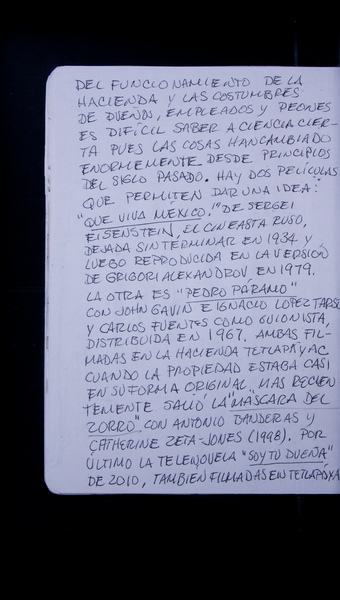 DEL FUNCIONAMIENTO DE LA
HACIENDA Y LAS COSTUMBRES
DE DUEÑOS, EMPLEADOS Y PEONES
ES DIFÍCIL SABER A CIENCIA CIER-
TA PUES LAS COSAS HAN CAMBIADO
ENORMEMENTE DESDE PRINCIPIOS
DEL SIGLO PASADO. HAY DOS PELÍCULAS
QUE PERMITEN DAR UNA IDEA:
"QUE VIVA MÉXICO!" DE SERGEI
EISENSTEIN, EL CINEASTA RUSO,
DEJADA SIN TERMINAR EN 1934 Y
LUEGO REPRODUCIDA EN LA VERSIÓN
DE GRIGORI ALEXANDROV, EN 1979.
LA OTRA ES "PEDRO PÁRAMO"
CON JOHN GAVIN E IGNACIO LOPEZ TARSO
Y CARLOS FUENTES COMO GUIONISTA,
DISTRIBUIDA EN 1967. AMBAS FIL-
MADAS EN LA HACIENDA TETLAPAYAC
CUANDO LA PROPIEDAD ESTAGA CASI
EN SU FORMA ORIGINAL. MAS RECIEN-
TEMENTE SALIÓ LA "MÁSCARA DEL
ZORRO" CON ANTONIO BANDERAS Y
CATHERINE ZETA-JONES (1998). POR
ÚLTIMO LA TELENOVELA "SOY TU DUEÑA"
DE 2010, TAMBIEN FILMADAS EN TETLAPAYA